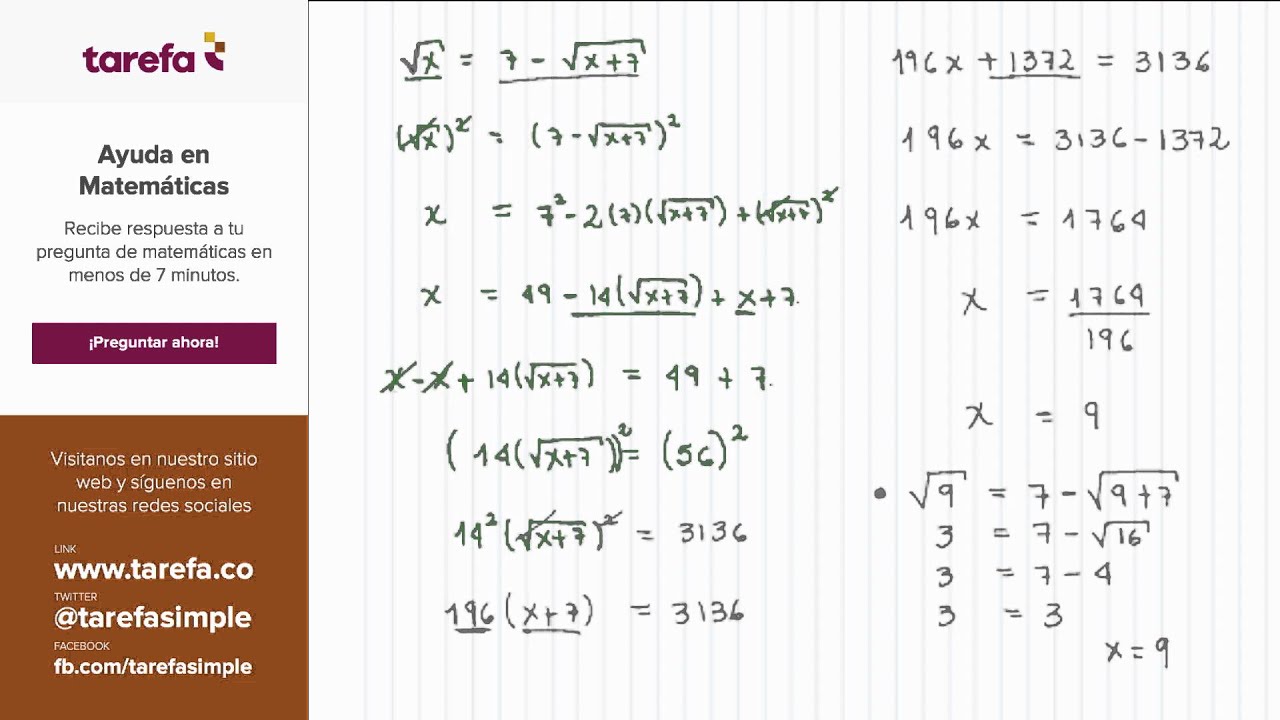 tarefa
Ayuda en
Matemáticas
Recibe respuesta a tu
pregunta de matemáticas en
menos de 7 minutos.
¡Preguntar ahora!
Visitanos en nuestro sitio
web y síguenos en
nuestras redes sociales
LINK
www.tarefa.co
TWITTER
@tarefasimple
FACEBOOK
fb.com/tarefasimple
√x = 7 - √(x+7)
(√x)² = (7 - √(x+7))²
x = 7² - 2(7)(√(x+7)) + (√(x+7))²
x = 49 - 14(√(x+7)) + x + 7.
x - x + 14(√(x+7)) = 49 + 7.
(14(√(x+7)))² = (56)²
14²(√(x+7))² = 3136
196(x+7) = 3136
196x + 1372 = 3136
196x = 3136 - 1372
196x = 1764
x = 1764/196
x = 9
• √9 = 7 - √(9+7)
3 = 7 - √16
3 = 7 - 4
3 = 3
x = 9